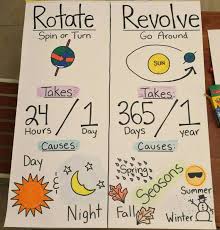 Rotate
Spin or Turn
Takes
24 / 1
Hours Day
Causes
Day
&
Night
Revolve
Go Around
SUN
Takes
365 / 1
Days year
Causes
Spring
Seasons
Summer
Fall
Winter